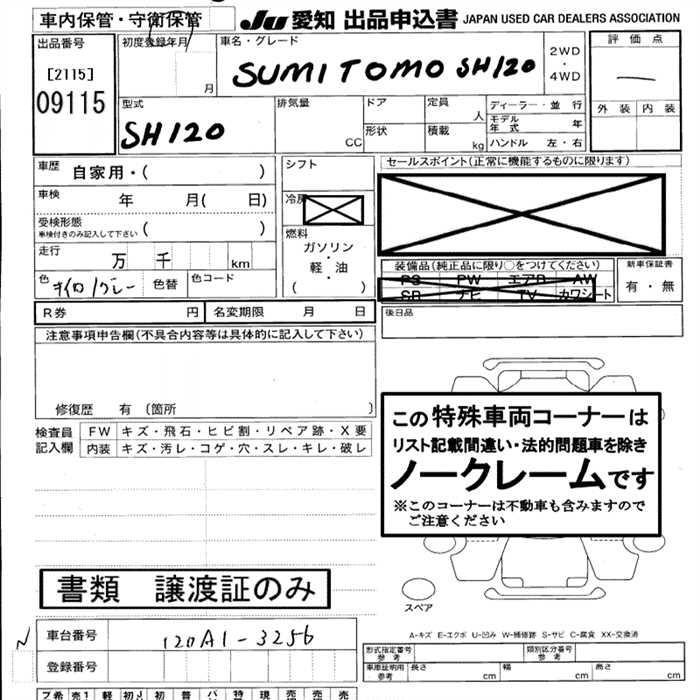 車内保管・守衛保管
JU 愛知 出品申込書 JAPAN USED CAR DEALERS ASSOCIATION
出品番号
[2115]
09115
初度登録年月
月
車名・グレード
SUMITOMO SH120
2WD
・
4WD
評価点
外装 内装
型式
SH120
排気量
CC
ドア
形状
定員
人
積載
kg
ディーラー・並行
モデル年式 年
ハンドル 左・右
車歴 自家用・( )
車検 年 月( 日)
受検形態
車検付きのみ記入して下さい ( )
走行 万 千 km
色 キイロ/グレー 色替 色コード
シフト
冷房
燃料
ガソリン・
軽・油
( )
セールスポイント(正常に機能するものに限ります)
装備品(純正品に限り○をつけてください)
PS PW エアB AW
SR ナビ TV カワシート
新車保証書
有・無
後日品
R券 円 名変期限 月 日
注意事項申告欄(不具合内容等は具体的に記入して下さい)
修復歴 有 〔箇所 〕
検査員
記入欄
FW キズ・飛石・ヒビ割・リペア跡・X要
内装 キズ・汚レ・コゲ・穴・スレ・キレ・破レ
この特殊車両コーナーは
リスト記載間違い・法的問題車を除き
ノークレームです
※このコーナーは不動車も含みますので
ご注意ください
スペア
書類 譲渡証のみ
N
車台番号 120A1-3256
登録番号
A-キズ E-エクボ U-凹み W-補修跡 S-サビ C-腐食 XX-交換済
形式指定番号
参考
類別区分番号
参考
車庫証明用
参考
長さ cm 幅 cm 高さ cm